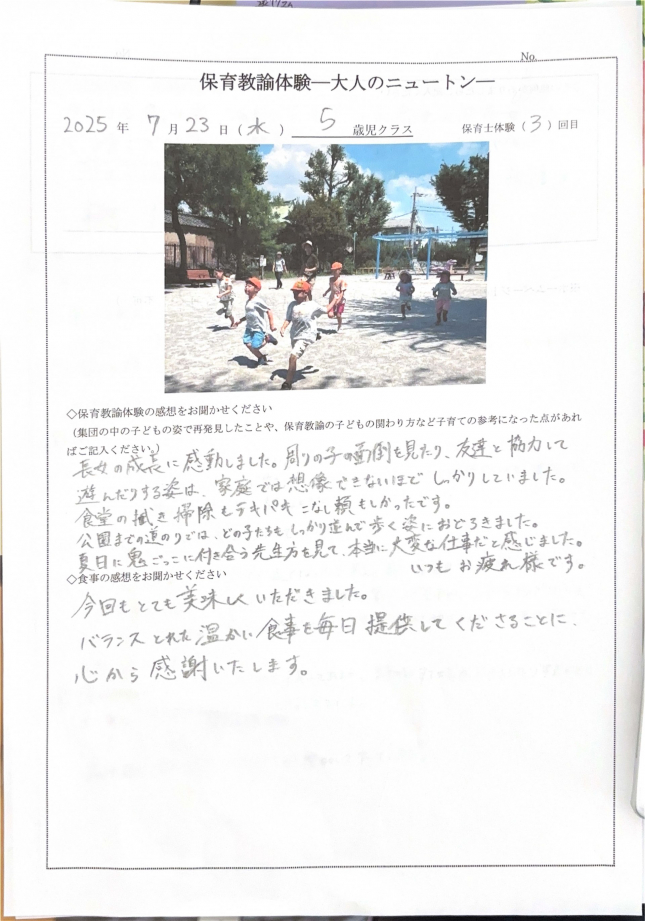 No.
保育教諭体験―大人のニュートン―
2025 年 7 月 23 日 ( 水 ) 5 歳児クラス 保育士体験 ( 3 ) 回目
◇保育教諭体験の感想をお聞かせください
(集団の中の子どもの姿で再発見したことや、保育教諭の子どもの関わり方など子育ての参考になった点があれ
ばご記入ください。)
長女の成長に感動しました。周りの子の面倒を見たり、友達と協力して
遊んだりする姿は、家庭では想像できないほどしっかりしていました。
食堂の掃き掃除もテキパキこなし頼もしかったです。
公園までの道のりでは、どの子たちもしっかり並んで歩く姿におどろきました。
夏日に鬼ごっこに付き合う先生方を見て、本当に大変な仕事だと感じました。
いつもお疲れ様です。
◇食事の感想をお聞かせください
今回もとても美味しくいただきました。
バランスとれた温かい食事を毎日提供してくださることに、
心から感謝いたします。